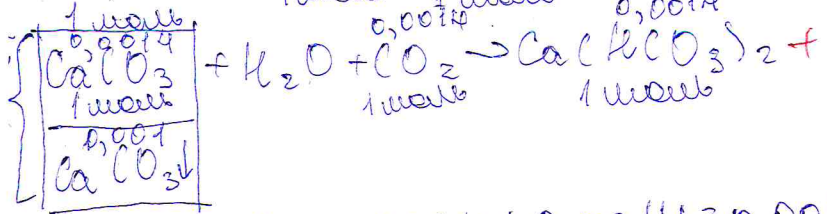 1 моль 0,0014
0,0014 0,0014
CaCO₃ + H₂O + CO₂ → Ca(HCO₃)₂ +
1 моль 1 моль 1 моль
0,001
CaCO₃↓